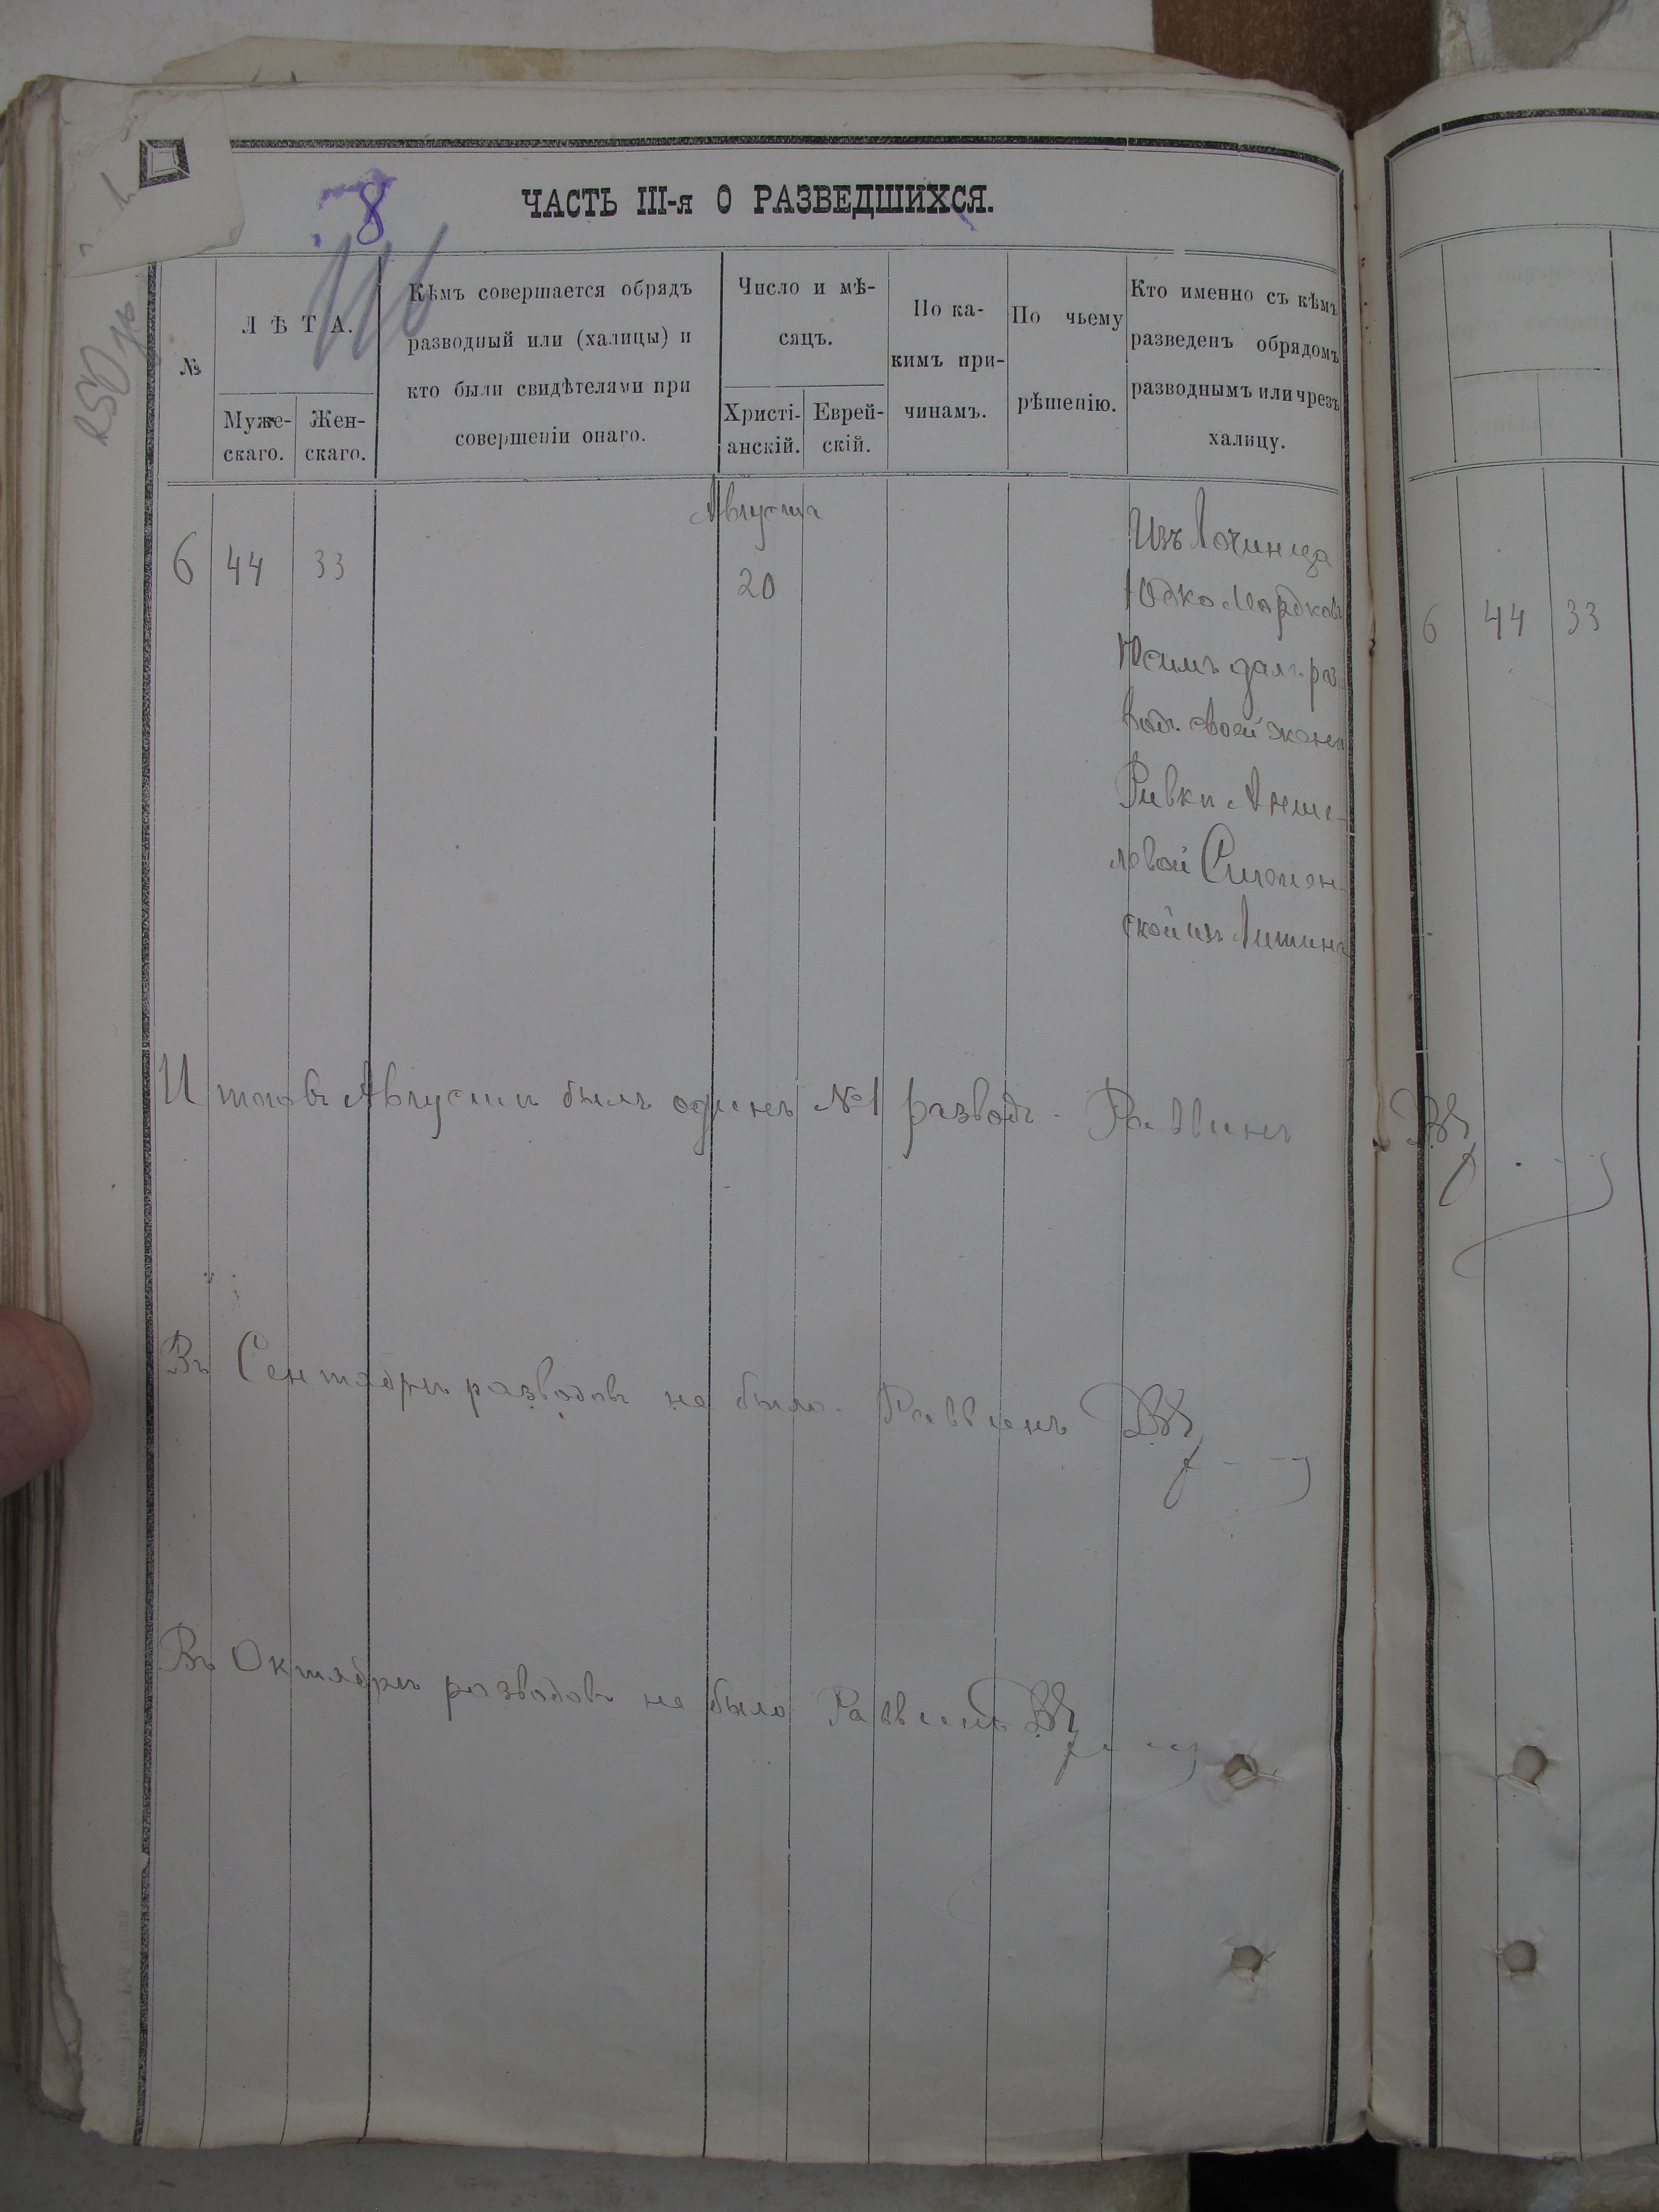 8
116
ЧАСТЬ III-я О РАЗВЕДШИХСЯ.
№
ЛѢТА.
Муже-
скаго.
Жен-
скаго.
Кѣмъ совершается обрядъ
разводный или (халицы) и
кто были свидѣтелями при
совершеніи онаго.
Число и мѣ-
сяцъ.
Христі-
анскій.
Еврей-
скій.
По ка-
кимъ при-
чинамъ.
По чьему
рѣшенію.
Кто именно съ кѣмъ
разведенъ обрядомъ
разводнымъ или чрезъ
халицу.
6 44 33
Августа
20
Изъ
Юдко Мордков
далъ раз-
водъ своей женѣ
Ривки Анше-
левой
ской изъ
Итого въ Августѣ былъ одинъ №1 разводъ. Раввинъ
Въ Сентябрѣ разводовъ не было. Раввинъ
Въ Октябрѣ разводовъ не было Раввинъ
6 44 33